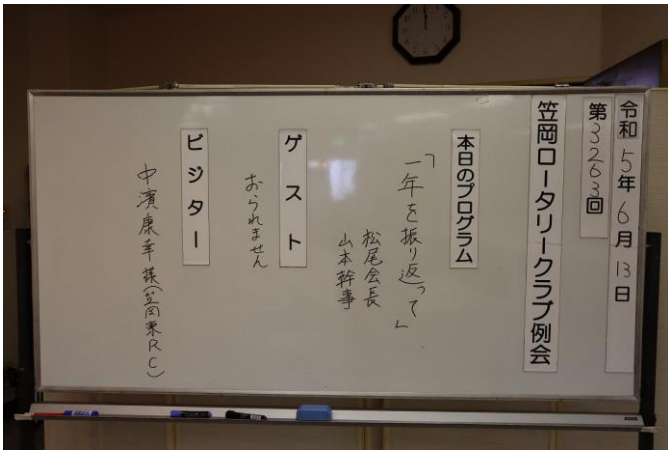 令和5年6月13日
第3263回
笠岡ロータリークラブ例会
本日のプログラム
「一年を振り返って」
松尾会長
山本幹事
ゲスト
おられません
ビジター
中濱康幸様(笠岡東RC)